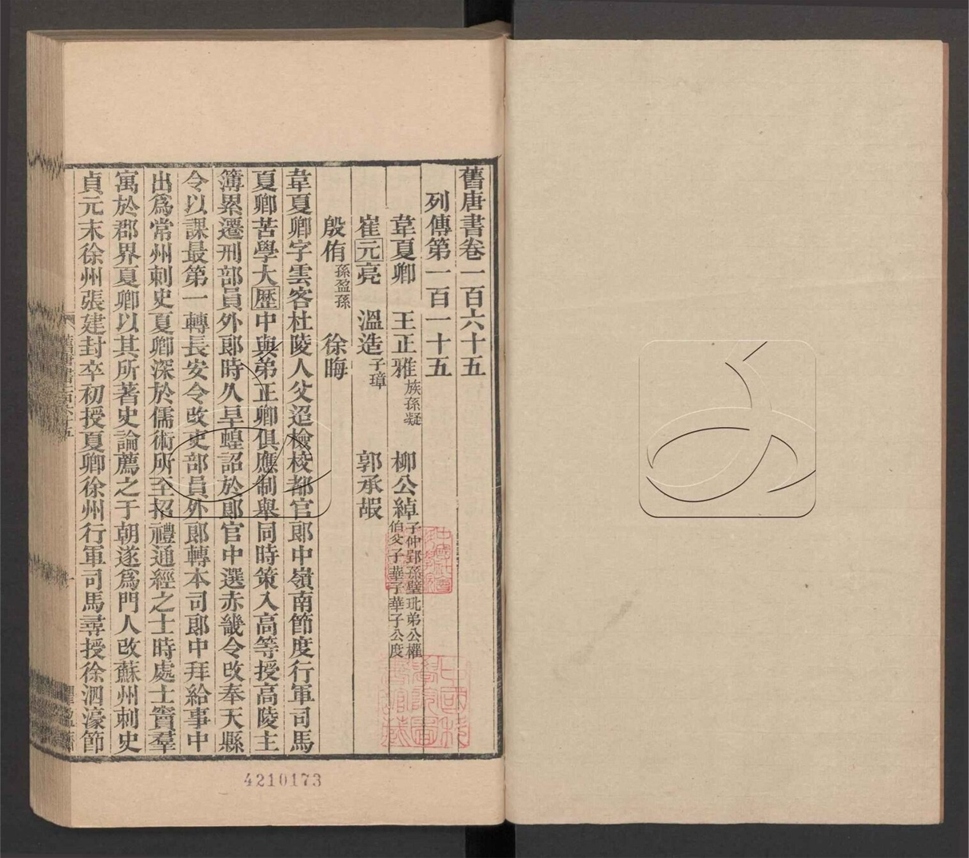 舊唐書卷一百六十五
列傳第一百一十五
韋夏卿 王正雅族孫凝 柳公綽子仲郢 孫璧 玭 弟公權 伯父子華 子華子公度
崔元亮 溫造子璋 郭承嘏
殷侑孫盈孫 徐晦
韋夏卿字雲客杜陵人父迢檢校都官郎中嶺南節度行軍司馬
夏卿苦學大歴中與弟正卿俱應制舉同時策入高等授高陵主
簿累遷刑部員外郎時久旱蝗詔於郎官中選赤畿令改奉天縣
令以課最第一轉長安令改吏部員外郎轉本司郎中拜給事中
出爲常州刺史夏卿深於儒術所至招禮通經之士時處士竇羣
寓於郡界夏卿以其所著史論薦之于朝遂爲門人改蘇州刺史
貞元末徐州張建封卒初授夏卿徐州行軍司馬尋授徐泗濠節
4210173